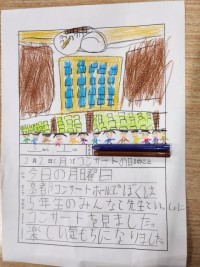 コンサート
今日の月曜日
コンサートホールでぼくは
5年生のみんなと先生といっしょに
コンサートを見ました。
楽しい気もちになりました。